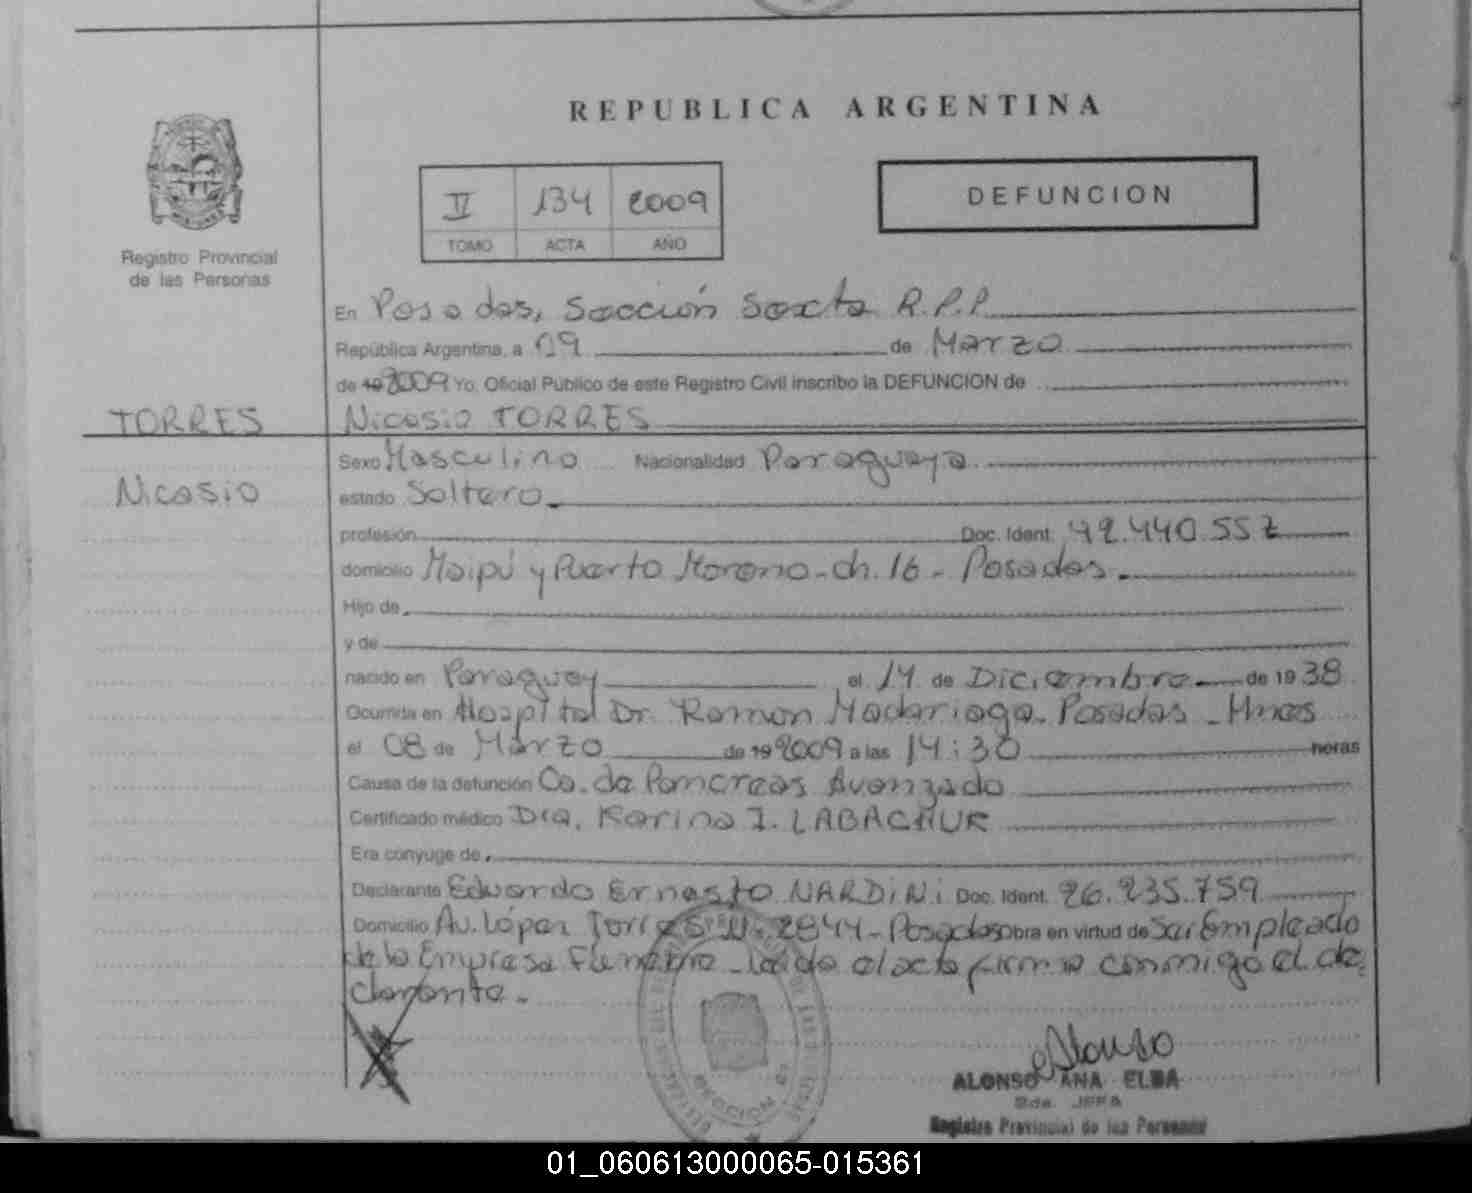 REPUBLICA ARGENTINA
II 134 2009
TOMO ACTA AÑO
DEFUNCION
Registro Provincial
de las Personas
En Posadas, Sección Sexta R.P.P.
República Argentina, a 09 de Marzo
de 19 2009 Yo, Oficial Público de este Registro Civil inscribo la DEFUNCION de
TORRES Nicasio TORRES
Sexo Masculino Nacionalidad Paraguaya
Nicasio estado Soltero
profesión Doc. Ident. 42.440.557
domicilio Maipú y Puerto Moreno - ch. 16 - Posadas
Hijo de
y de
nacido en Paraguay el 14 de Diciembre de 1938
Ocurrida en Hospital Dr. Ramon Madariaga - Posadas - Mnes
el 08 de Marzo de 19 2009 a las 14:30 horas
Causa de la defunción Ca. de Pancreas Avanzado
Certificado médico Dra. Karina I. LABACHUK
Era conyuge de
Declarante Eduardo Ernesto NARDINI Doc. Ident. 26.235.759
Domicilio Av. López Torres N. 2844 - Posadas obra en virtud de Ser Empleado
de la Empresa Funebre - leída el acta firma conmigo el de
clarante.
Alonso
ALONSO ANA ELBA
2da. JEFA
Registro Provincial de las Personas
01_060613000065-015361